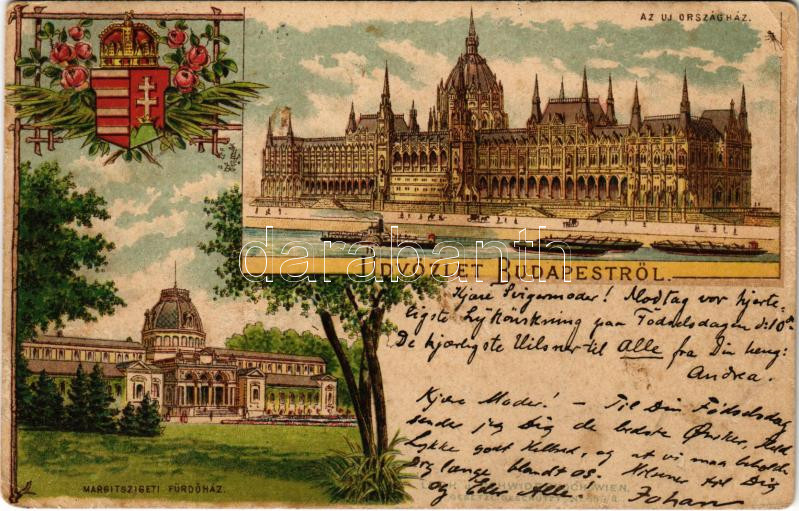 AZ UJ ORSZÁGHÁZ.
darabanth
ÜDVÖZLET BUDAPESTRŐL.
Kjære Svigermoder! Modtag vor hjerte-
ligste Lykönskning paa Födselsdagen d: 10de
De kjærligste Hilsner til Alle fra Din heng:
Andrea.
Kjære Moder! – Til Din Födselsdag
sender jeg Dig de bedste Ønsker, Held
Lykke godt Helbred, og at vi maa beholde
Dig længe blandt os. Hilsner til Dig
og Eder Alle. Johan
MARGITSZIGETI FÜRDŐHÁZ.
WIEN.